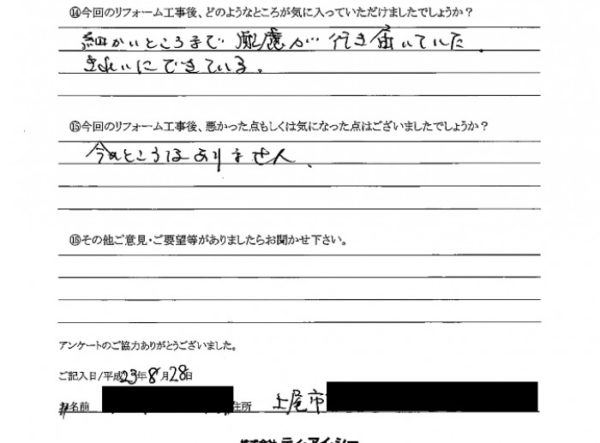 ⑭今回のリフォーム工事後、どのようなところが気に入っていただけましたでしょうか?
細かいところまで配慮が行き届いていた。
きれいにできている。
⑮今回のリフォーム工事後、悪かった点もしくは気になった点はございましたでしょうか?
今のところはありません。
⑯その他ご意見・ご要望等がありましたらお聞かせ下さい。
アンケートのご協力ありがとうございました。
ご記入日/平成23年8月28日
お名前 住所 上尾市
株式会社 ティ・アイ・シー